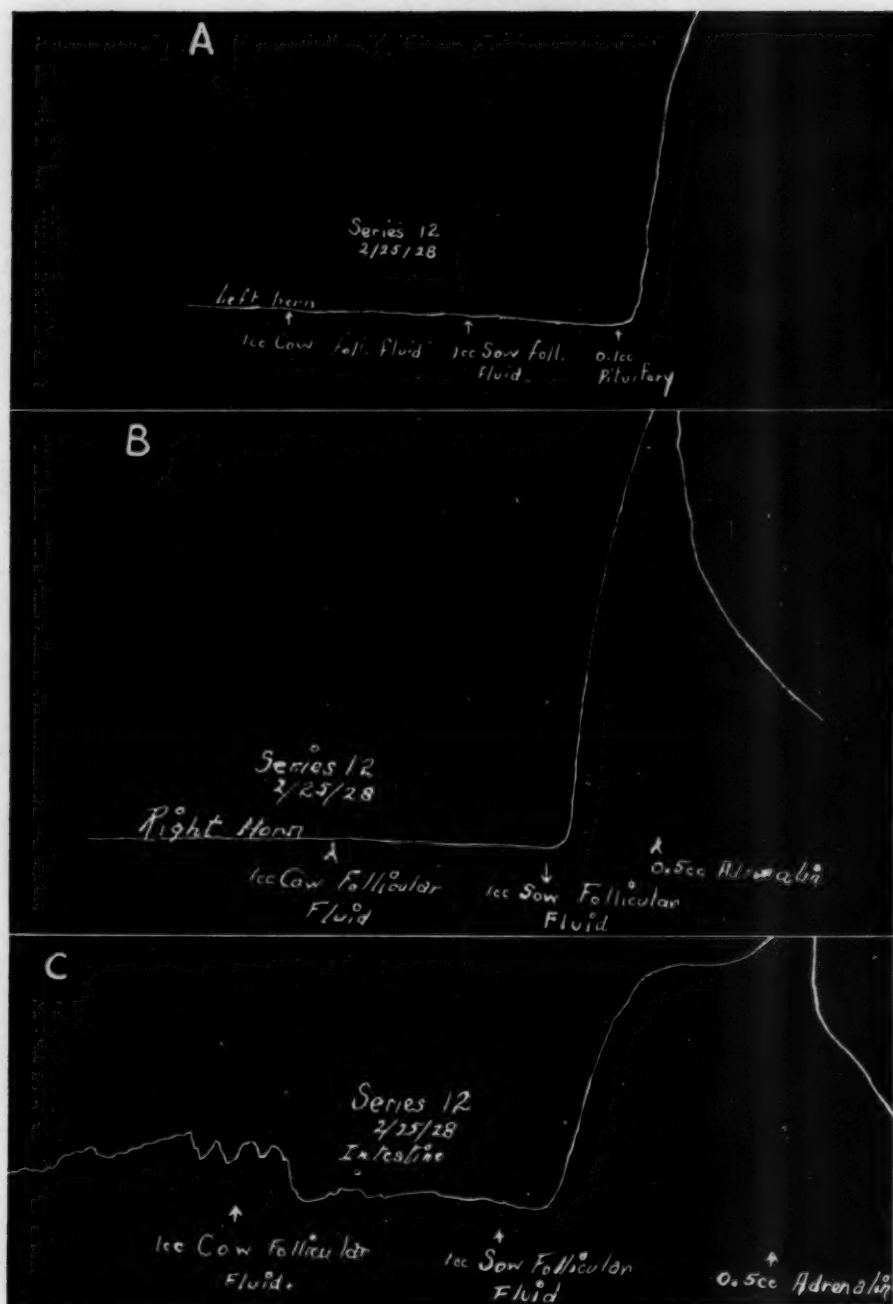 A
Series 12
2/25/28
Left horn
1cc Cow foll. Fluid
1cc Sow foll.
Fluid.
0.1cc
Pituitary
B
Series 12
2/25/28
Right Horn
1cc Cow Follicular
Fluid
1cc Sow Follicular
Fluid
0.5cc Adrenalin
C
Series 12
2/25/28
Intestine
1cc Cow Follicular
Fluid.
1cc Sow Follicular
Fluid
0.5cc Adrenalin